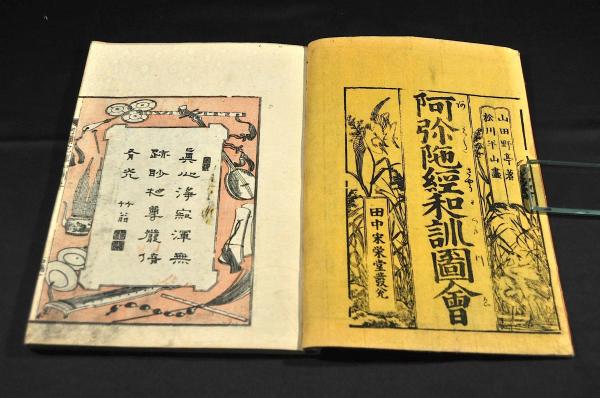 山田野亭著
松川半山畫
阿弥陀經和訓圖會
田中宋榮堂發兌
眞心淨寂渾無
跡 尊 倍
有光
竹翁